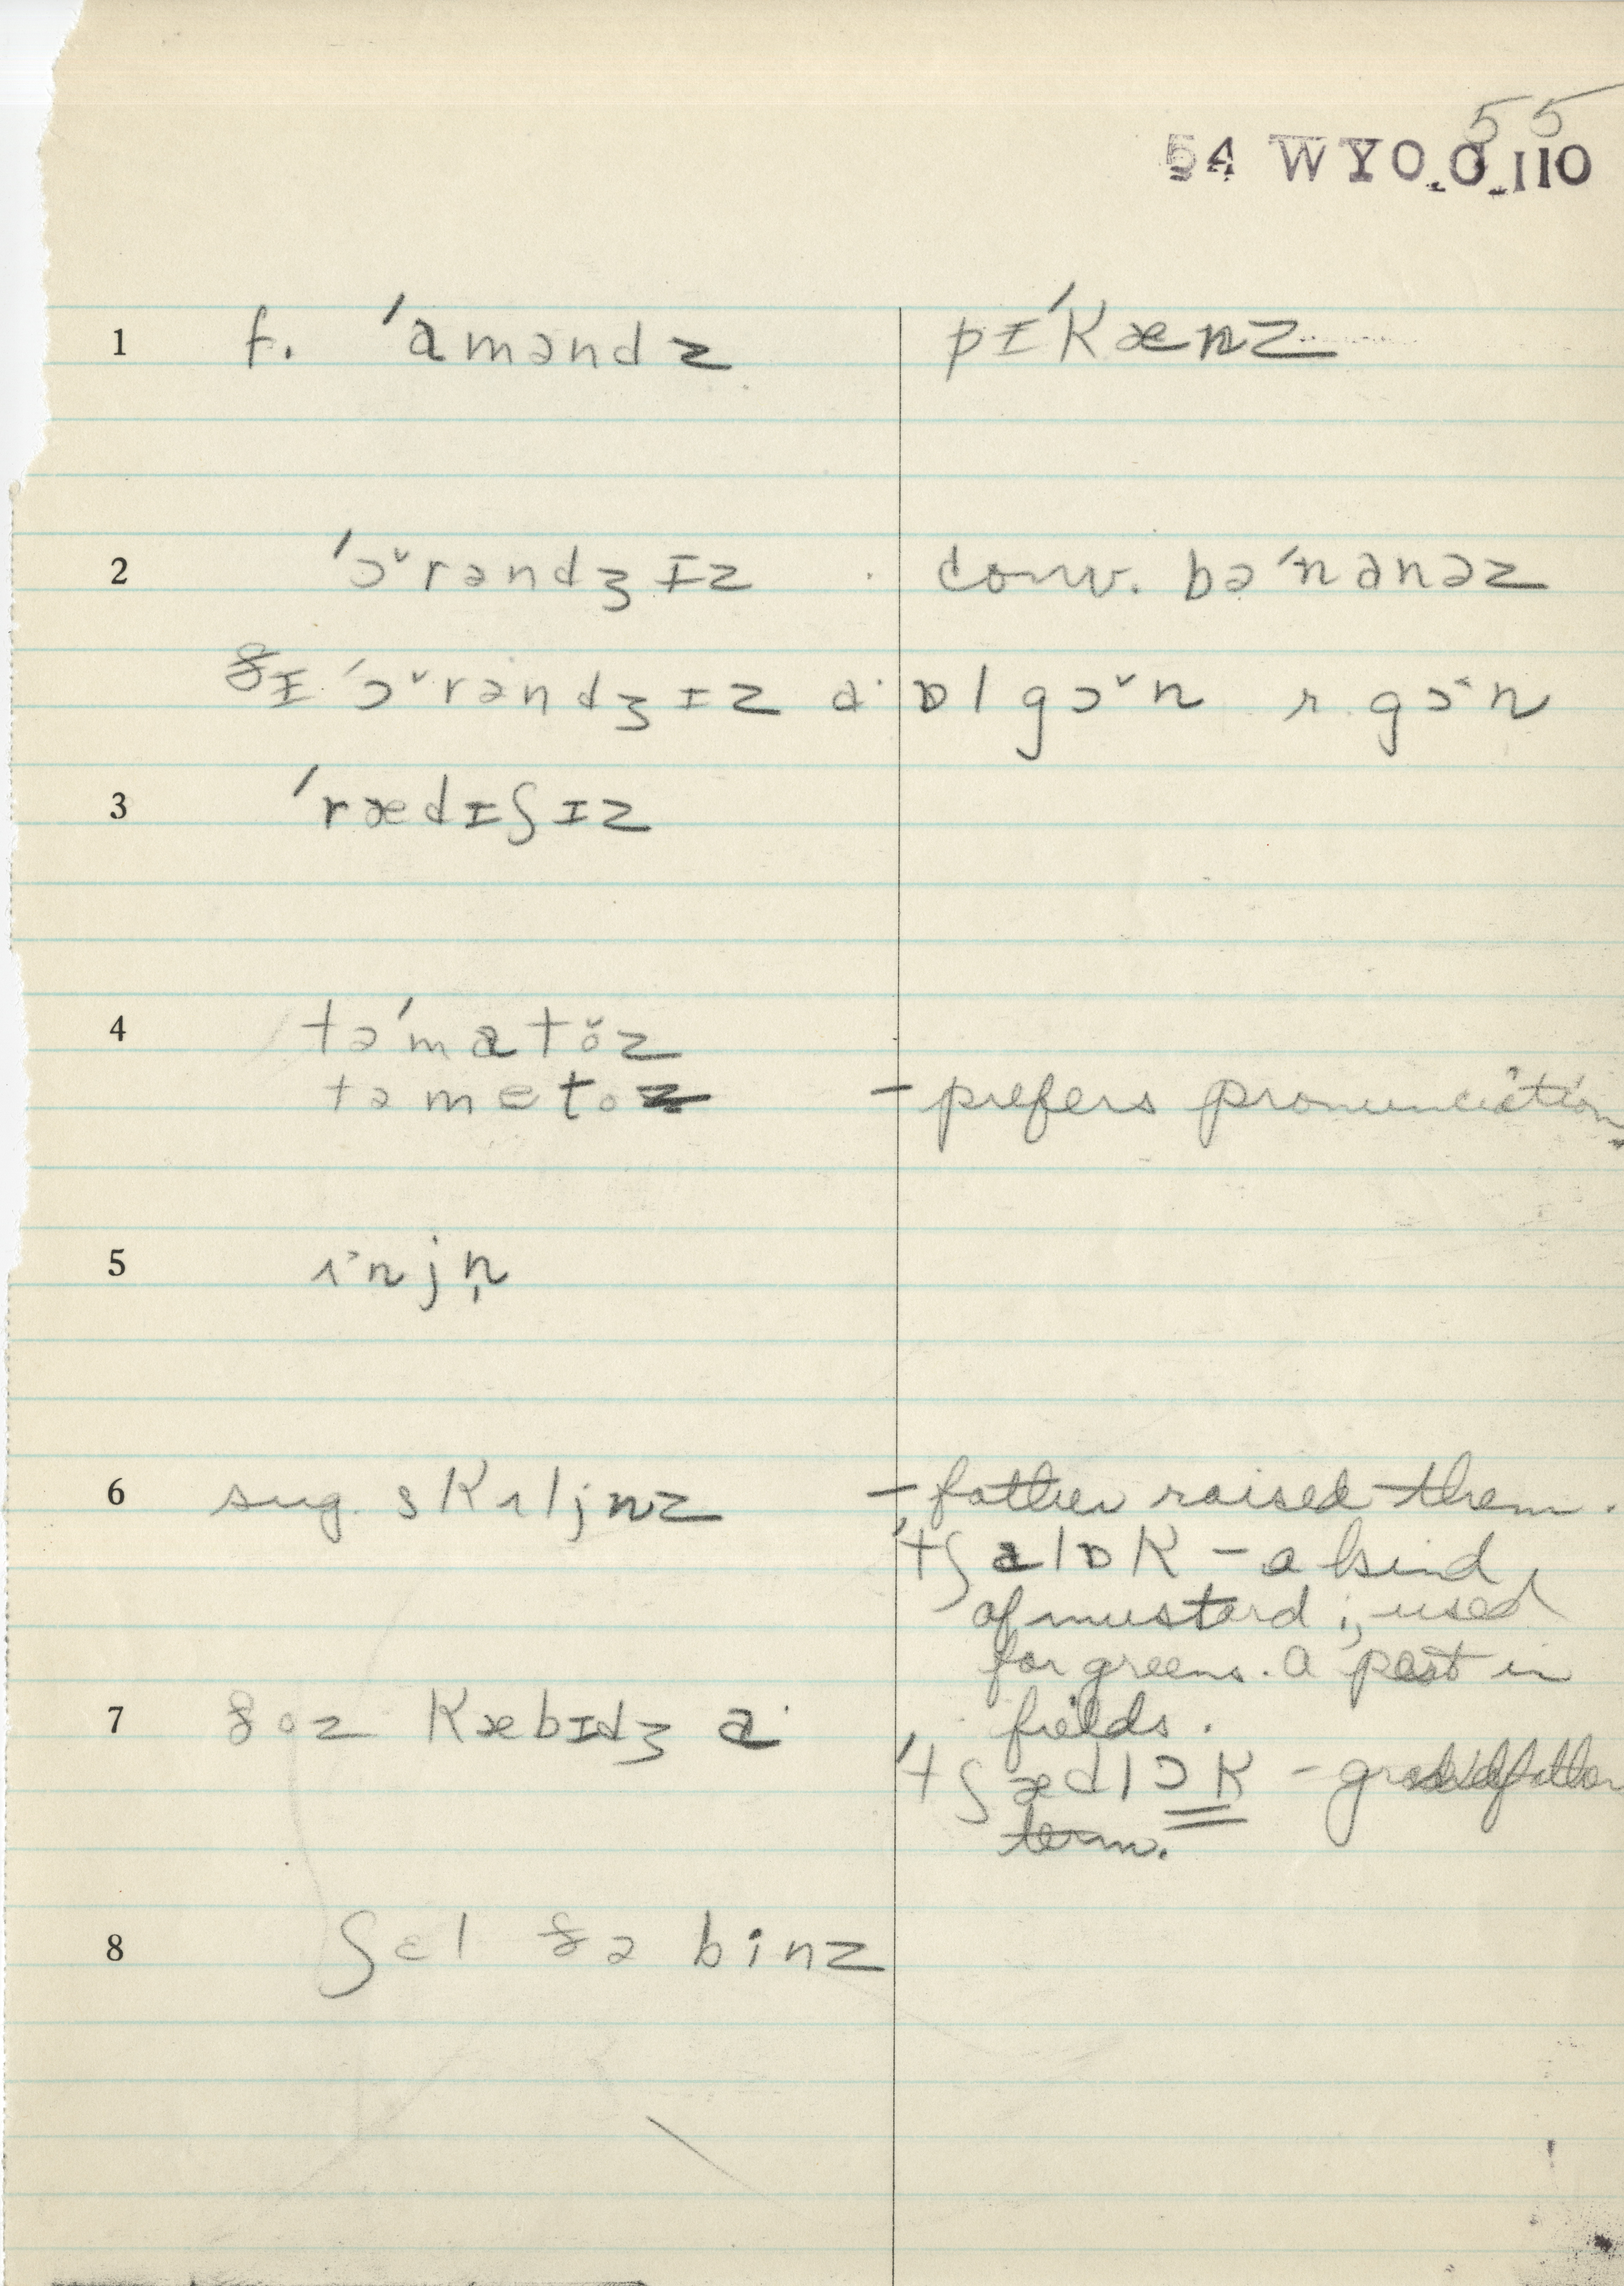 55
54 WYO.0.110
1 f. ˈɑməndz pɪˈkænz
2 ˈɔ˅rəndʒɪz conv. bəˈnanəz
ðɪ ˈɔ˅rəndʒɪz a· ɒl gɔ˅n r. gɔ˄n
3 ˈrædɪʃɪz
4 təˈmatö̆z
tə met oz - prefers pronunciation
5 ɪ˃njn̩
6 sug. skɪljnz - father raised them.
ˈtʃalɒk - a kind
of mustard; used
for greens. A pest in
fields.
7 ðoz kæbɪdʒ a·
ˈtʃædlɔk - grandfather
term.
8 ʃɛl ðə binz